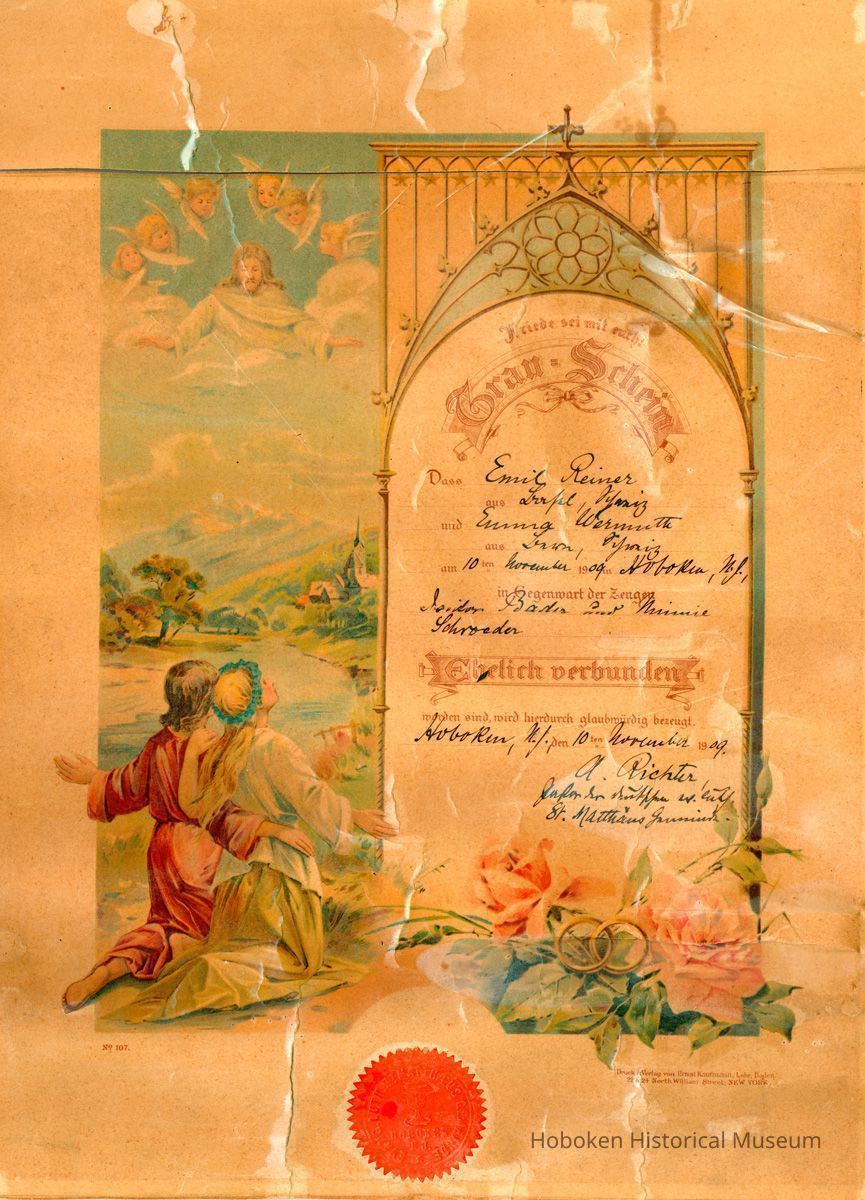 Friede sei mit euch!
Trau-Schein
Dass Emil Reiner
aus Basel, Schweiz
und Emma Wermuth
aus Bern, Schweiz
am 10 ten November 1909 in Hoboken, N.J.,
in Gegenwart der Zeugen
Isidor Bader und Minnie
Schroeder
Ehelich verbunden
worden sind, wird hierdurch glaubwürdig bezeugt.
Hoboken, N.J. den 10 ten November 1909.
A. Richter,
Pastor der deutschen ev. luth.
St. Matthäus Gemeinde.
No 107.
Druck u. Verlag von Ernst Kaufmann, Lahr, Baden.
22 & 24 North William Street, NEW YORK.
Hoboken Historical Museum